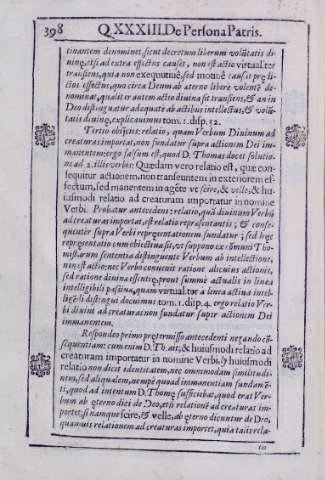 398 Q. XXXIII. De Persona Patris.
tinantem denominet, sicut decretum liberum volūtatis di-
uinę, etsi ad extra effectus causet, non est actio virtualiter
transiens, quia non exequutiuè, sed motiuè causat prędi-
ctos effectus, quo circa Deum ab ęterno liberè volentē de-
nominat, qualiter autem actio diuina sit transiens, & an in
Deo distinguatur adęquatè ab actibus intellectus, & volū-
tatis diuinę, explicauimus tom. 1. disp. 12.
Tertio obijcies: relatio, quam Verbum Diuinum ad
creaturas importat, non fundatur supra actionem Dei im-
manentem: ergo falsum est, quod D. Thomas docet solutio-
ne ad 2. illis verbis: Quædam vero relatio est, quæ con-
sequitur actionem, non transeuntem in exteriorem ef-
fectum, sed manentem in agēte, vt scire, & velle, & hu-
iusmodi relatio ad creaturam importatur in nomine
Verbi. Probatur antecedens: relatio, quā diuinum Verbū
ad creaturas importat, est relatio repręsentantis; & conse-
quenter supra Verbi repręsentationem fundatur; sed hęc
repręsentatio cum obiectiua sit, vt suppono ex cōmuni Tho-
mistarum sententia distinguente Verbum ab intellectione,
non est actio: nec Verbo conuenit ratione alicuius actionis,
sed ratione diuinæ essentię, prout summè actualis in linea
intelligibili passiua, quam virtualiter a linea actiua intel-
ligēdi distingui docuimus tom. 1. disp. 4. ergo relatio Ver-
bi diuini ad creaturas non fundatur super actionem Dei
immanentem.
Respondeo primo prętermisso antecedenti negando cō-
sequentiam: cum enim D. Th. ait, & huiusmodi relatio ad
creaturam importatur in nomine Verbi, ly huiusmodi
relatio non dicit identitatem, nec omnimodam similitudi-
nem, sed aliqualem, nempè quoad immanentiam fundamē-
ti, quod ad intentum D. Thomę sufficiebat, quod erat Ver-
bum ab ęterno dici de Deo, etsi relationē ad creaturas im-
portet; si namque scire, & velle, ab ęterno dicuntur de Deo,
quamuis relationem ad creaturas importet, quia talis rela-